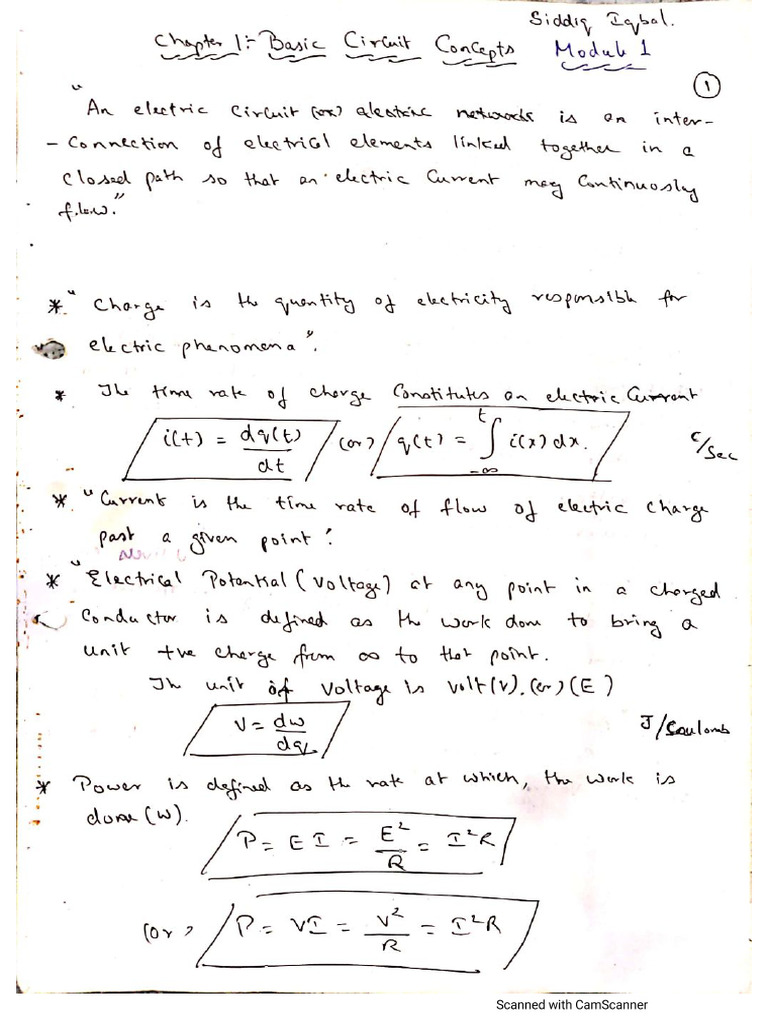 Siddiq Iqbal.
Chapter 1:- Basic Circuit Concepts Module 1
1
"An electric circuit (or) electric networks is an inter-
- Connection of electrical elements linked together in a
closed path so that an electric current may continuosly
flow."
* "Charge is the quantity of electricity responsible for
electric phenomena".
* The time rate of charge constitutes an electric current
i(t) = dq(t)/dt (or) q(t) = ∫_{-∞}^{t} i(x) dx. C/Sec
* "Current is the time rate of flow of electric charge
past a given point".
* "Electrical Potential (Voltage) at any point in a charged
conductor is defined as the work done to bring a
unit +ve charge from ∞ to that point.
The unit of voltage is volt(v). (or) (E)
V = dw/dq J/Coulomb
* Power is defined as the rate at which, the work is
done (W).
P = EI = E²/R = I²R
(or) P = VI = V²/R = I²R
Scanned with CamScanner